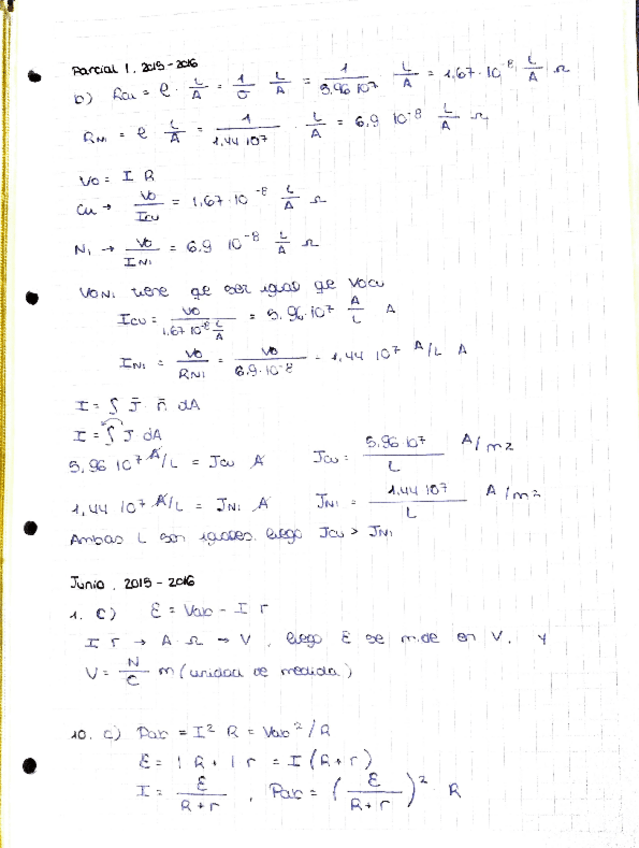 Parcial 1. 2015-2016
b) Rcu = ρ · L/A = 1/σ L/A = 1/5.96 10⁷ L/A = 1,67·10⁻⁸ L/A Ω
RNi = ρ L/A = 1/1,44 10⁷ · L/A = 6,9 10⁻⁸ L/A Ω
Vo = I R
Cu → Vo/Icu = 1,67·10⁻⁸ L/A Ω
Ni → Vo/INi = 6.9 10⁻⁸ L/A Ω
VoNi tiene qe ser igual qe Vocu
Icu = Vo/1,67 10⁻⁸ L/A = 5.96·10⁷ A/L A
INi = Vo/RNi = Vo/6.9·10⁻⁸ = 1,44 10⁷ A/L A
I = ∫ J̄ · n̄ dA
I = ∫ J dA
5,96 10⁷ A/L = Jcu A Jcu = 5,96 10⁷/L A/m2
1,44 10⁷ A/L = JNi A JNi = 1,44 10⁷/L A/m2
Ambas L son iguales. luego Jcu > JNi
Junio. 2015-2016
1. C) ε = Vab - I r
I r → A · Ω → V, luego ε se mide en V. y
V = N/C m (unidad de medida)
10. c) Pab = I² R = Vab²/R
ε = I R + I r = I (R+r)
I = ε/R+r , Pab = (ε/R+r)² R